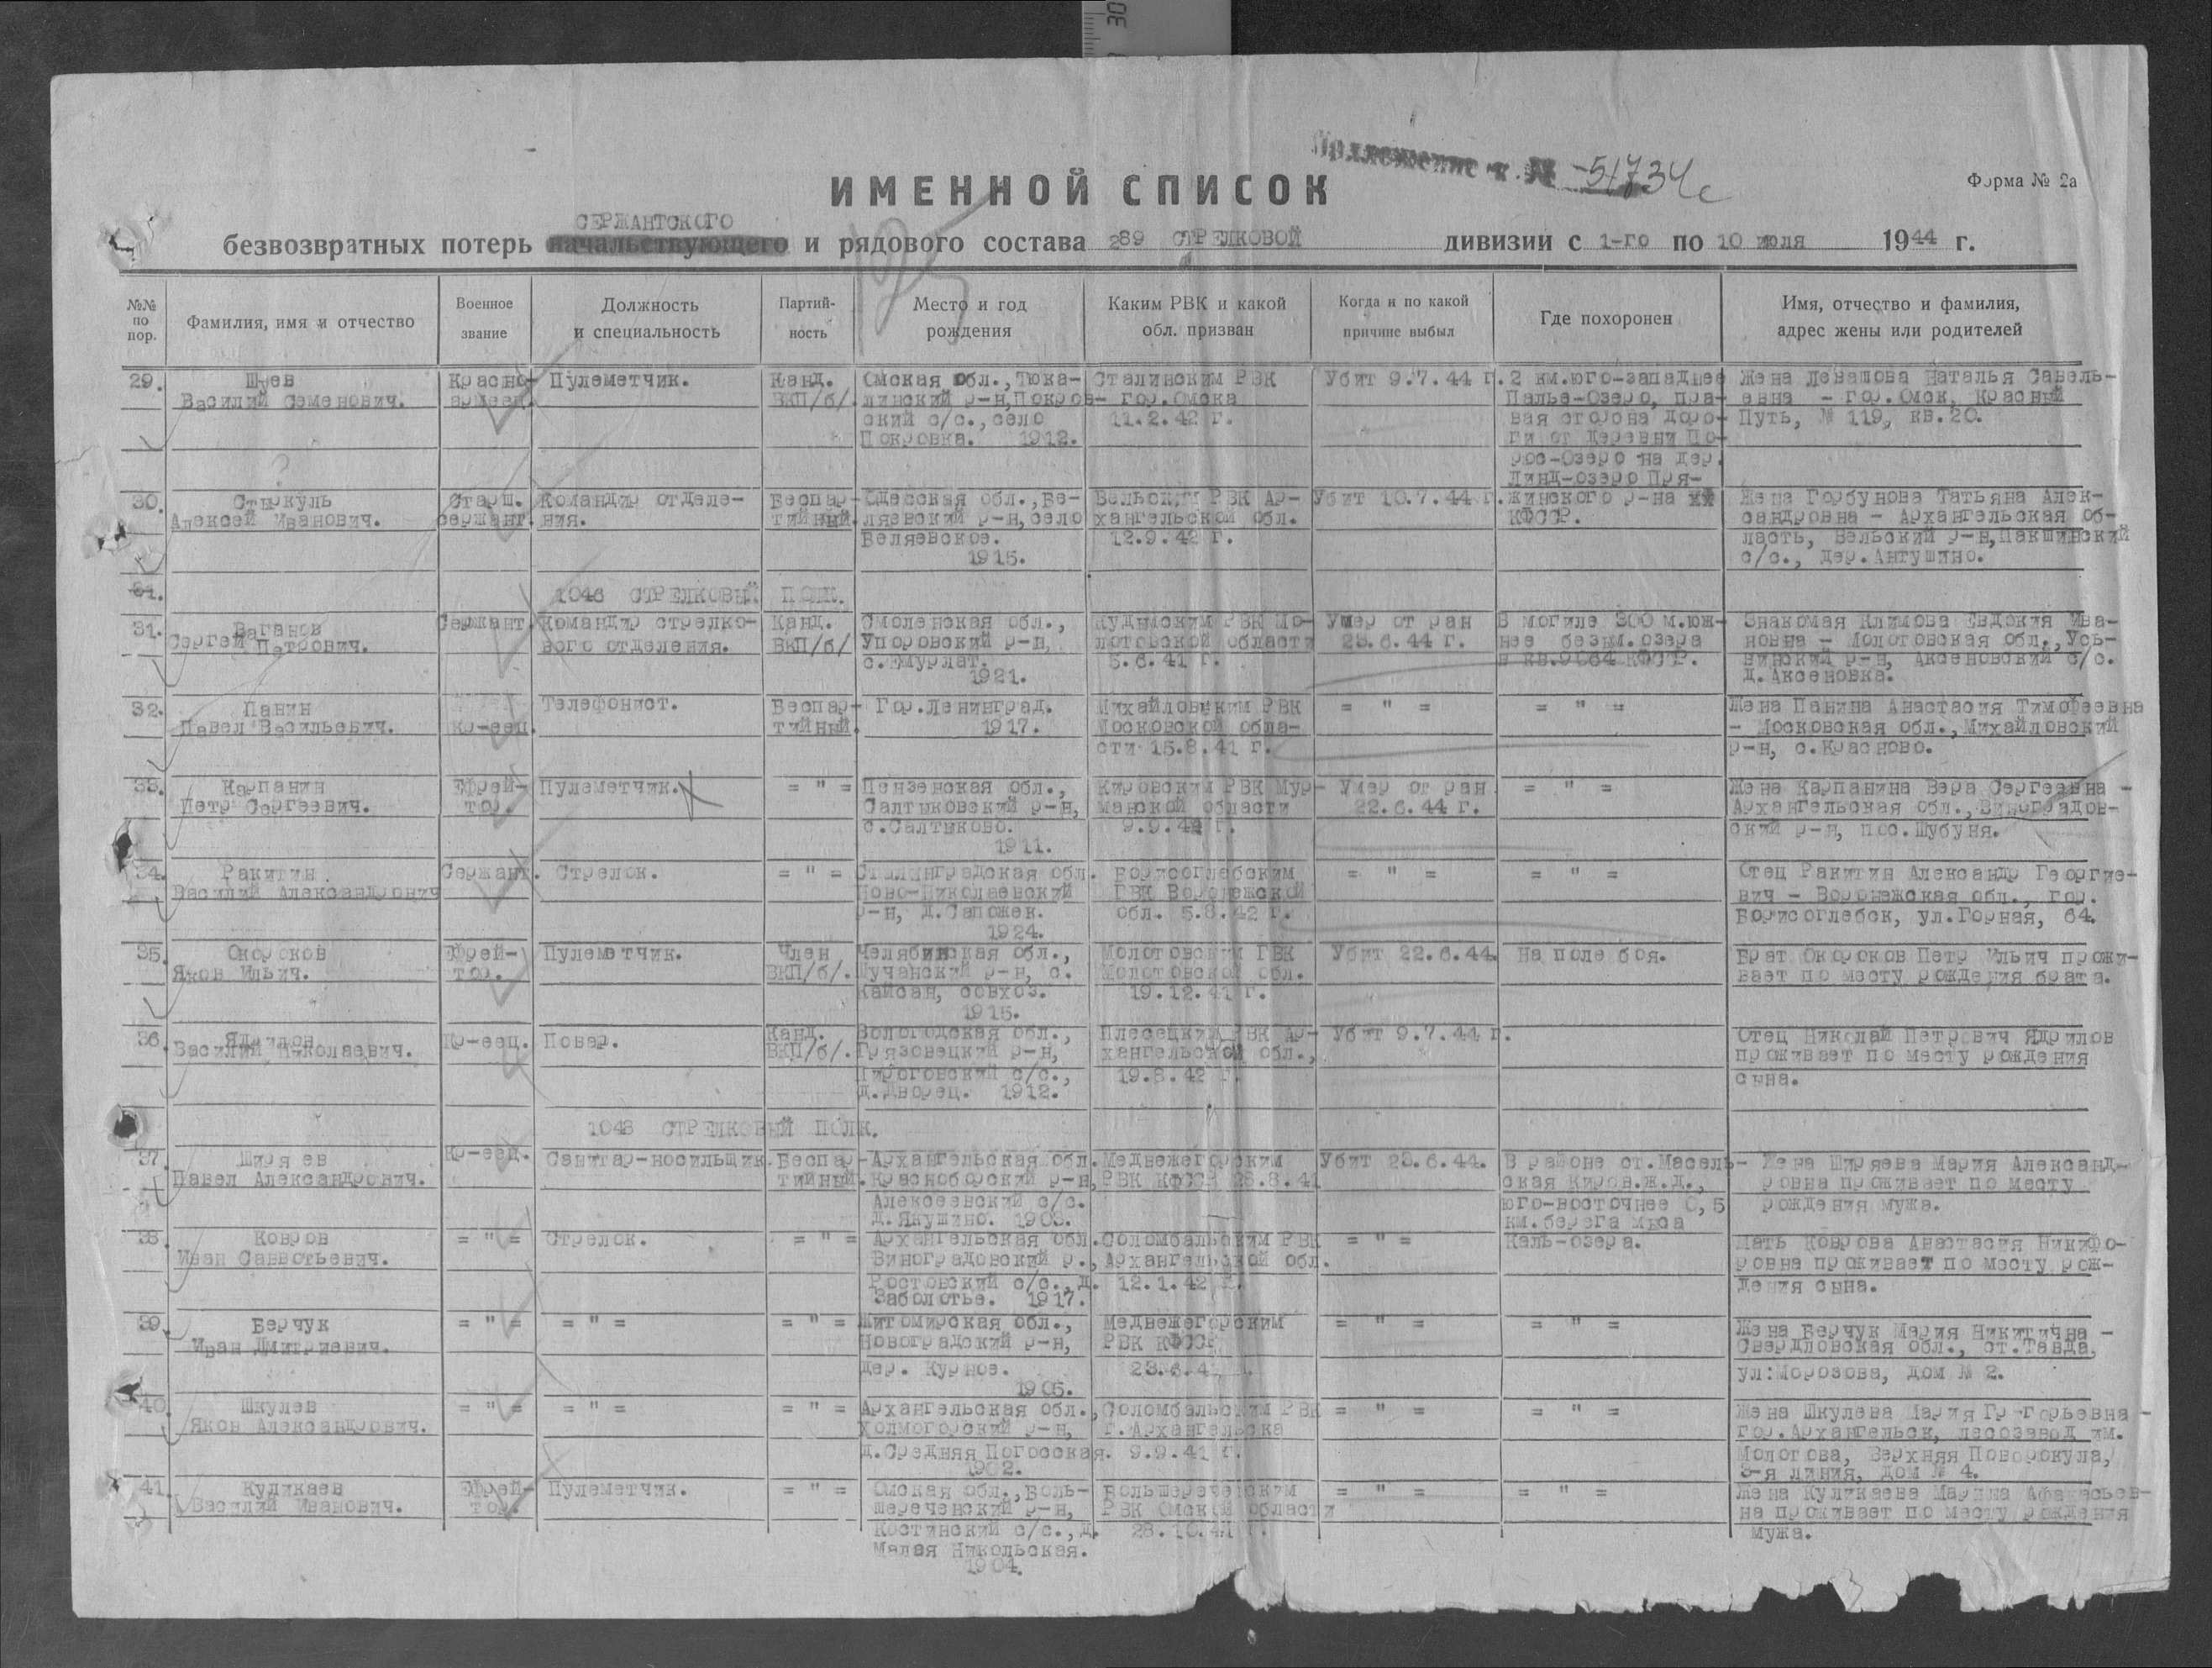 30
Приложение к № 51734с
ИМЕННОЙ СПИСОК
Форма № 2а
СЕРЖАНТСКОГО
безвозвратных потерь начальствующего и рядового состава 289 СТРЕЛКОВОЙ дивизии с 1-го по 10 июля 1944 г.
№№ по пор. | Фамилия, имя и отчество | Военное звание | Должность и специальность | Партийность | Место и год рождения | Каким РВК и какой обл. призван | Когда и по какой причине выбыл | Где похоронен | Имя, отчество и фамилия, адрес жены или родителей
29. Шуев Красно- Пулеметчик. Канд. Омская обл., Тюка- Сталинским РВК Убит 9.7.44 г. 2 км.юго-западнее Жена Левашова Наталья Савель-
Василий Семенович. армеец. ВКП/б/. линский р-н, Покров- гор.Омска Палье-Озеро, пра- евна - гор.Омск, Красный
ский с/с., село 11.2.42 г. вая сторона доро- Путь, № 119, кв.20.
Покровка. 1912. ги от деревни По-
рос-Озеро на дер.
Линд-озеро Пря-
30. Стыркуль Старш. Командир отделе- Беспар- Одесская обл., Бе- Вельским РВК Ар- Убит 10.7.44 г. жинского р-на Жена Горбунова Татьяна Алек-
Алексей Иванович. сержант ния. тийный. ляевский р-н, село хангельской обл. КФССР. сандровна - Архангельская об-
Беляевское. 12.9.42 г. ласть, Вельский р-н, Пакшинский
1915. с/с., дер.Антушино.
31. 1046 СТРЕЛКОВЫЙ ПОЛК.
31. Ваганов Сержант Командир стрелко- Канд. Смоленская обл., Кудымским РВК Мо- Умер от ран В могиле 300 м.юж- Знакомая Климова Евдокия Ива-
Сергей Петрович. вого отделения. ВКП/б/ Упоровский р-н, лотовской области 23.6.44 г. нее безым.озера новна - Молотовская обл., Усь-
с.Емурлат. 5.6.41 г. в кв.9064 КФССР. винский р-н, Аксеновский с/с.
1921. Д.Аксеновка.
32. Панин Телефонист. Беспар- Гор.Ленинград. Михайловским РВК = " = = " = Жена Панина Анастасия Тимофеевна
Павел Васильевич. кр-еец. тийный. 1917. Московской обла- - Московская обл., Михайловский
сти 15.8.41 г. р-н, с.Красново.
33. Карпанин Ефрей- Пулеметчик. = " = Пензенская обл., Кировским РВК Мур- Умер от ран = " = Жена Карпанина Вера Сергеевна -
Петр Сергеевич. тор. Салтыковский р-н, манской области 22.6.44 г. Архангельская обл., Виноградов-
с.Салтыково. 9.9.42 г. ский р-н, пос.Шубуня.
1911.
34. Ракитин Сержант. Стрелок. = " = Сталинградская обл. Борисоглебским = " = = " = Отец Ракитин Александр Георгие-
Василий Александрович Ново-Николаевский ГВК Воронежской вич - Воронежская обл., гор.
р-н, д.Сапожек. обл. 5.8.42 г. Борисоглебск, ул.Горная, 64.
1924.
35. Окороков Ефрей- Пулеметчик. Член Челябинская обл., Молотовским ГВК Убит 22.6.44. На поле боя. Брат Окороков Петр Ильич прожи-
Яков Ильич. тор. ВКП/б/. Мучанский р-н, с. Молотовской обл. вает по месту рождения брата.
Кайсан, совхоз. 19.12.41 г.
1915.
36. Ядрилов Кр-еец. Повар. Канд. Вологодская обл., Плесецким РВК Ар- Убит 9.7.44 г. Отец Николай Петрович Ядрилов
Василий Николаевич. ВКП/б/. Грязовецкий р-н, хангельской обл., проживает по месту рождения
Пироговский с/с., 19.8.42 г. сына.
д.Дворец. 1912.
1048 СТРЕЛКОВЫЙ ПОЛК.
37. Ширяев Кр-еец. Санитар-носильщик. Беспар- Архангельская обл. Медвежегорским Убит 23.6.44. В районе ст.Масель- Жена Ширяева Мария Александ-
Павел Александрович. тийный. Красноборский р-н, РВК КФССР 28.8.41 ская Киров.ж.д., ровна проживает по месту
Алексеевский с/с. юго-восточнее 0,5 рождения мужа.
д.Якушино. 1903. км.берега мыса
38. Ковров = " = Стрелок. = " = Архангельская обл. Соломбальским РВК = " = Каль-озера. Мать Коврова Анастасия Никифо-
Иван Савватьевич. Виноградовский р., Архангельской обл. ровна проживает по месту рож-
Ростовский с/с., д. 12.1.42 г. дения сына.
Заболотье. 1917.
39. Берчук = " = = " = = " = Житомирская обл., Медвежегорским = " = = " = Жена Берчук Мария Никитична -
Иван Дмитриевич. Новоградский р-н, РВК КФССР Свердловская обл., ст.Тавда,
дер. Курное. 23.6.41 ул:Морозова, дом № 2.
1905.
40. Шкулев = " = = " = = " = Архангельская обл., Соломбальским РВК = " = = " = Жена Шкулева Мария Григорьевна -
Яков Александрович. Холмогорский р-н, г.Архангельска гор.Архангельск, лесозавод им.
д.Средняя Погосская. 9.9.41 г. Молотова, Верхняя Поворокула,
1902. 3-я линия, дом № 4.
41. Куликаев Ефрей- Пулеметчик. = " = Омская обл., Боль- Большереченским = " = = " = Жена Куликаева Марина Афанасьев-
Василий Иванович. тор. шереченский р-н, РВК Омской области на проживает по месту рождения
Костинский с/с., д. 28.10.41 г. мужа.
Малая Никольская.
1904.